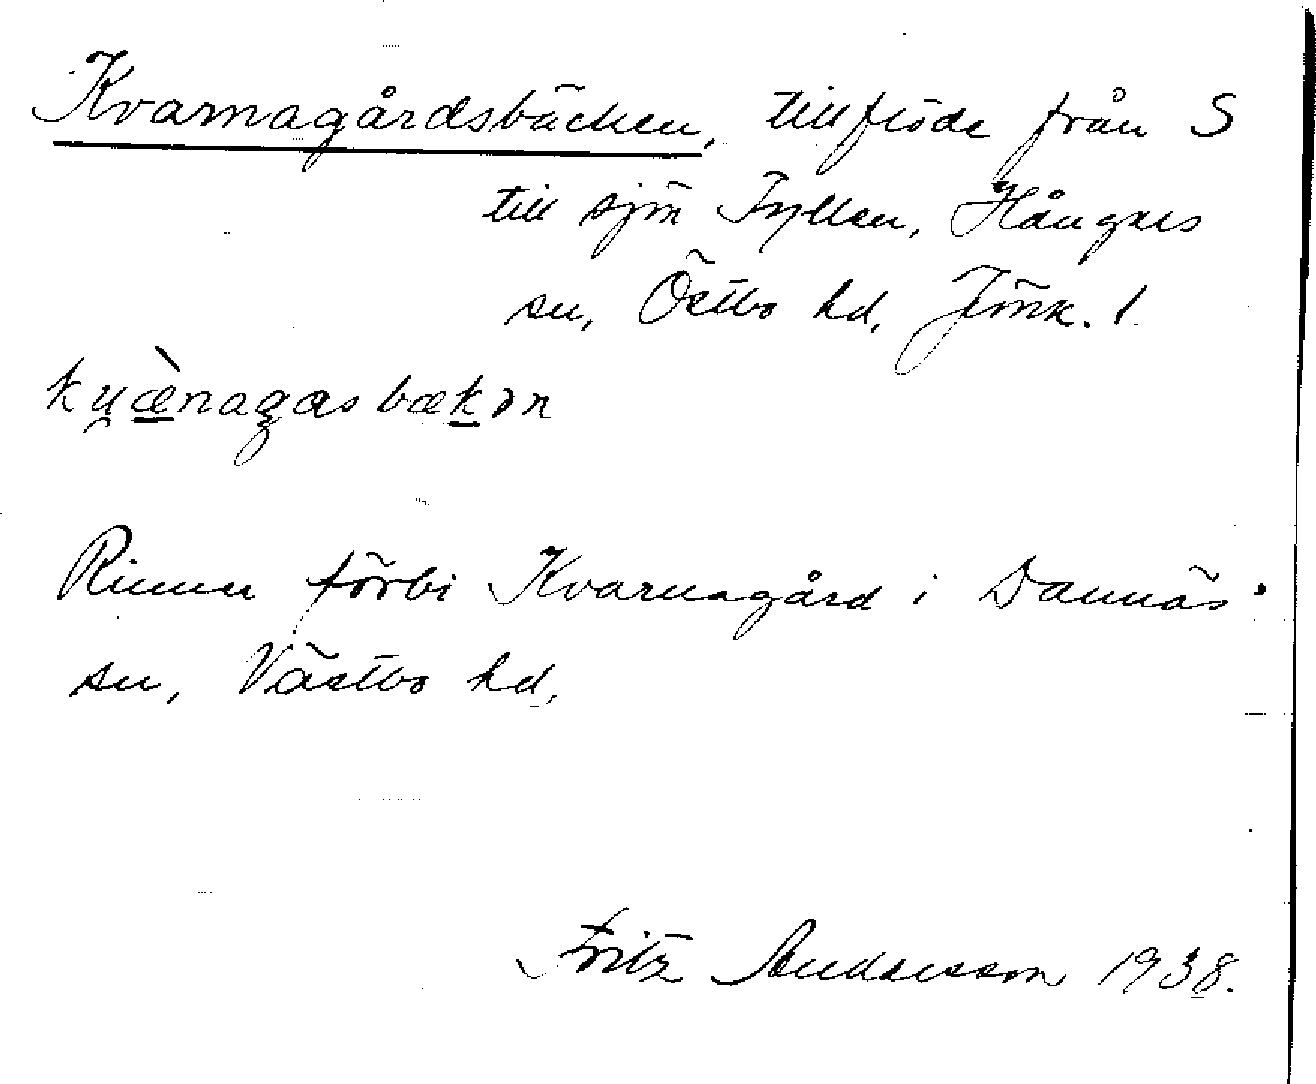 Kvarnagårdsbäcken, tillflöde från S
till sjön Fyllen, Hångers
sn, Östbo hd, Jönk. l.
ku̯æ̀nagasbækən
Rinner förbi Kvarnagård i Dannäs
sn, Västbo hd,
Fritz Andersson 1938.